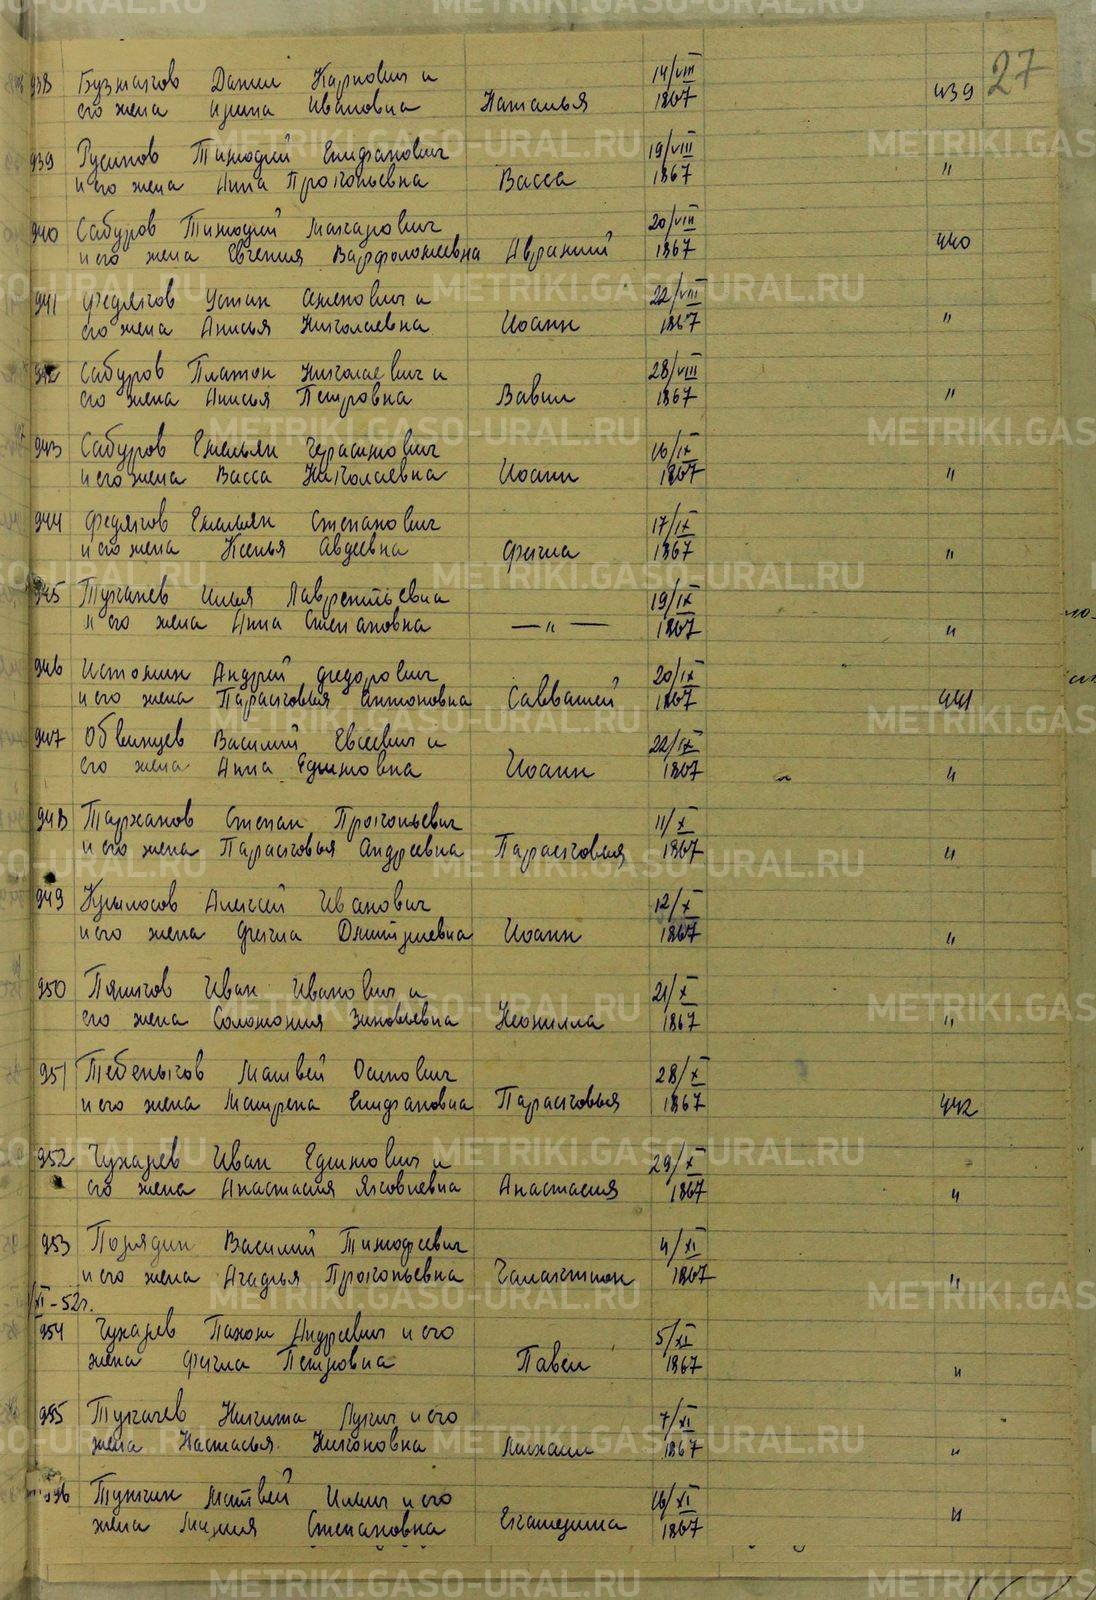 27
938 Бузмаков Данил Карпович и 14/VIII
его жена Ирина Ивановна Наталья 1867 439
939 Русинов Тимофей Епифанович 19/VIII
и его жена Анна Прокопьевна Васса 1867 "
940 Сабуров Тимофей Макарович 20/VIII
и его жена Евгения Варфоломеевна Авраамий 1867 440
941 Федяков Устин Семенович и 22/VIII
его жена Анисья Николаевна Иоанн 1867 "
942 Сабуров Платон Николаевич и 28/VIII
его жена Анисья Петровна Вавил 1867 "
943 Сабуров Емельян Герасимович 16/IX
и его жена Васса Николаевна Иоанн 1867 "
944 Федяков Емельян Степанович 17/IX
и его жена Ксенья Авдеевна Фекла 1867 "
945 Илья Лаврентьевна 19/IX
и его жена Анна Степановна — " — 1867 "
946 Истомин Андрей Федорович 20/IX
и его жена Парасковья Антоновна Савватей 1867 441
947 Обвинцев Василий Евсеевич и 22/IX
его жена Анна Ефимовна Иоанн 1867 "
948 Таржанов Степан Прокопьевич 11/X
и его жена Парасковья Андреевна Парасковья 1867 "
949 Крылосов Алексей Иванович 12/X
и его жена Фекла Дмитриевна Иоанн 1867 "
950 Иван Иванович и 21/X
его жена Соломония Зиновьевна Неонилла 1867 "
951 Тебеньков Матвей Осипович 28/X
и его жена Матрена Епифановна Парасковья 1867 442
952 Чухарев Иван Ефимович и 29/X
его жена Анастасия Яковлевна Анастасия 1867 "
953 Порядин Василий Тимофеевич 4/XI
и его жена Агафья Прокопьевна Галактион 1867 "
XI-52г.
954 Чухарев Пахом Андреевич и его 5/XI
жена Фекла Петровна Павел 1867 "
955 Никита Лукич и его 7/XI
жена Настасья Никоновна Михаил 1867 "
956 Матвей Ильич и его 16/XI
жена Мария Степановна Екатерина 1867 "
METRIKI.GASO-URAL.RU